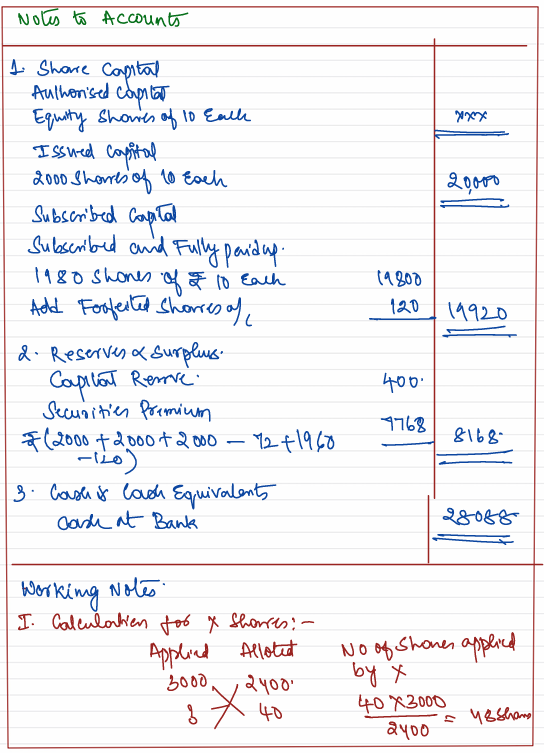 Notes to Accounts
1. Share Capital
Authorised Capital
Equity Shares of 10 Each xxx
Issued Capital
2000 Shares of 10 Each 20,000
Subscribed Capital
Subscribed and Fully paidup.
1980 Shares of ₹ 10 Each 19800
Add Forfeited Shares a/c 120 19920
2. Reserves & Surplus.
Capital Reserve. 400.
Securities Premium 7768 8168.
₹(2000 + 2000 + 2000 - 72 + 1960
-120)
3. Cash & Cash Equivalents
Cash at Bank 28088
Working Notes.
I. Calculation for X Shares:-
Applied Alloted No of Shares applied
by X
3000 2400. 40 X 3000
2400
= 48 Shares
? 40